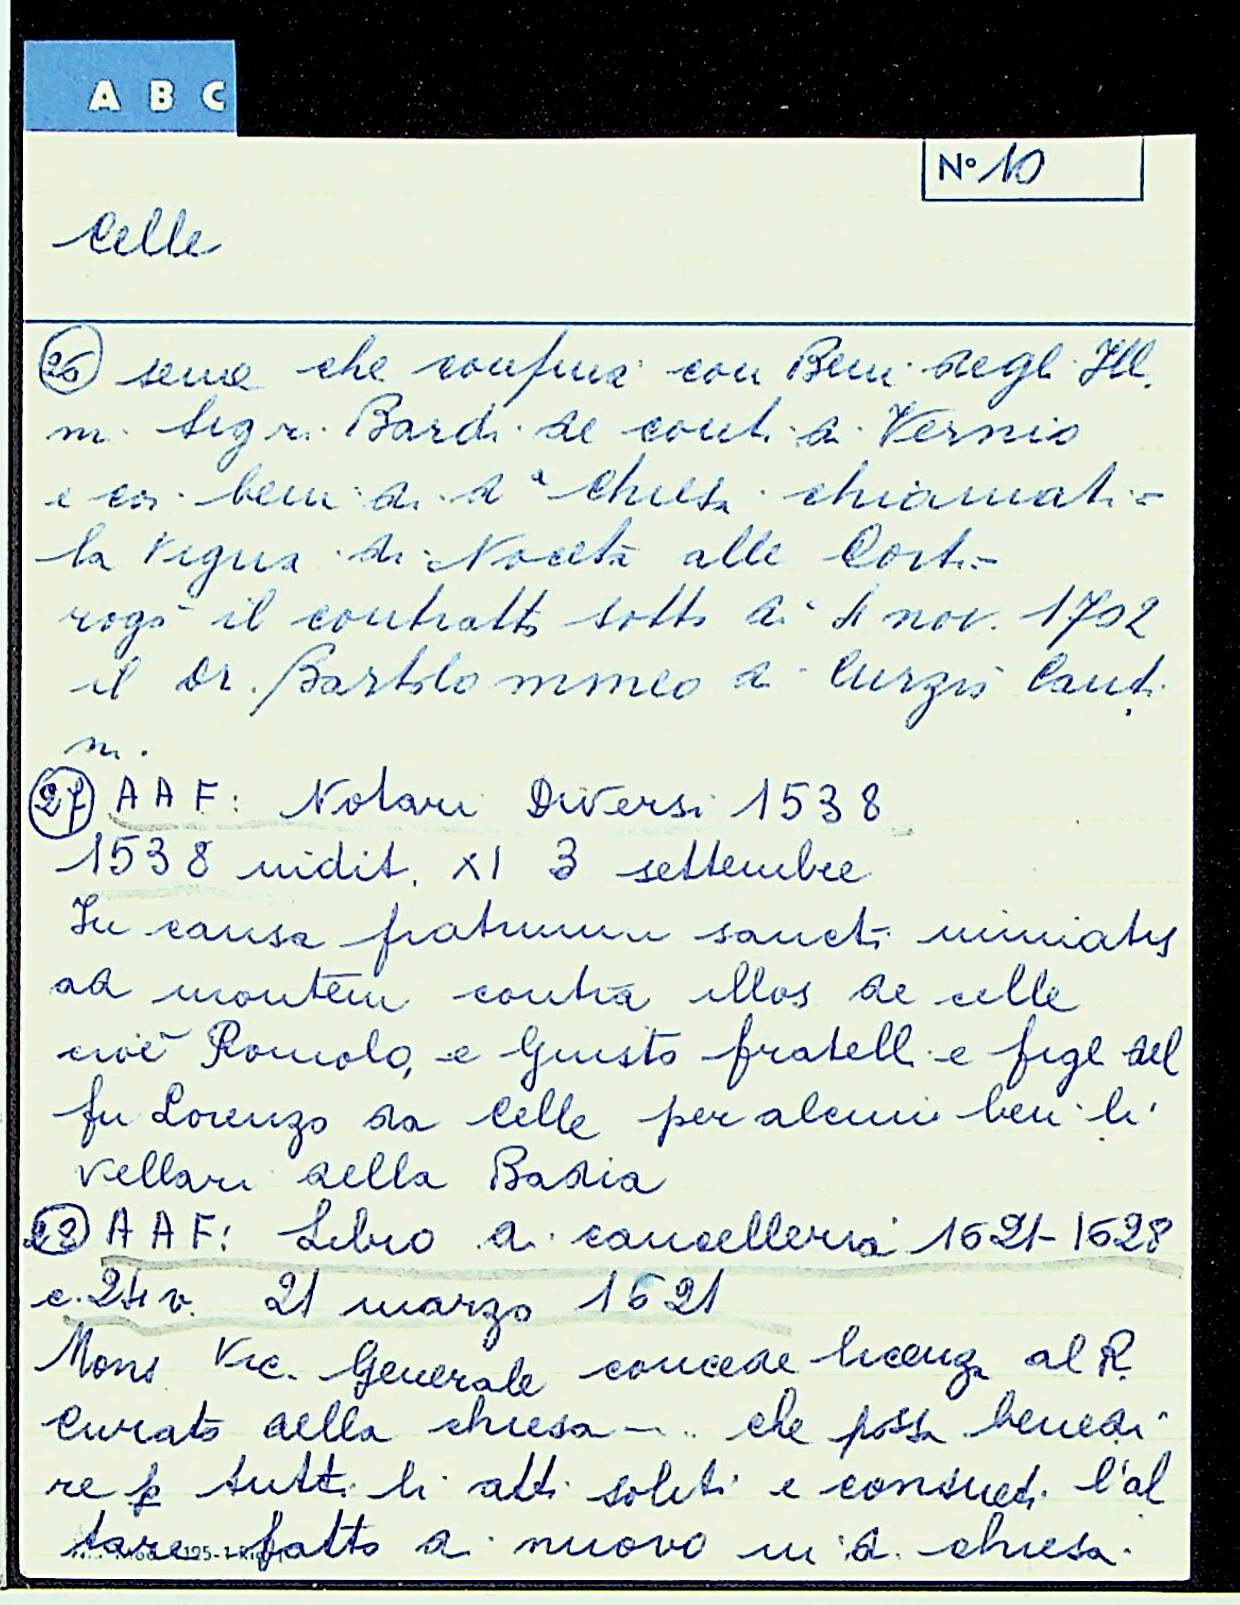 A B C
N° 10
Celle
26 seme che confina con Beni degli Ill.
m. Sigri. Bardi de conti di Vernio
e coi beni di da Chiesa chiamati =
la vigna di Noceta alle Corti =
rogò il contratto sotto di 4 nov. 1702
il Dr. Bartolommeo di Curzio Canti
ni.
27 A A F: Notari Diversi 1538
1538 indit. XI 3 settembre
In causa fratrum sancti miniatis
ad montem contra illos de celle
cioè Romolo, e Giusto fratelli e figli del
fu Lorenzo da Celle per alcuni beni li
vellari della Badia
A A F: Libro di cancelleria 1621-1628
c. 24 v. 21 marzo 1621
Mons Vic. Generale concede licenza al R.
Curato della chiesa ... che possa benedi
re p tutti li atti soliti e consueti l'al
tare fatto di nuovo in d. chiesa.